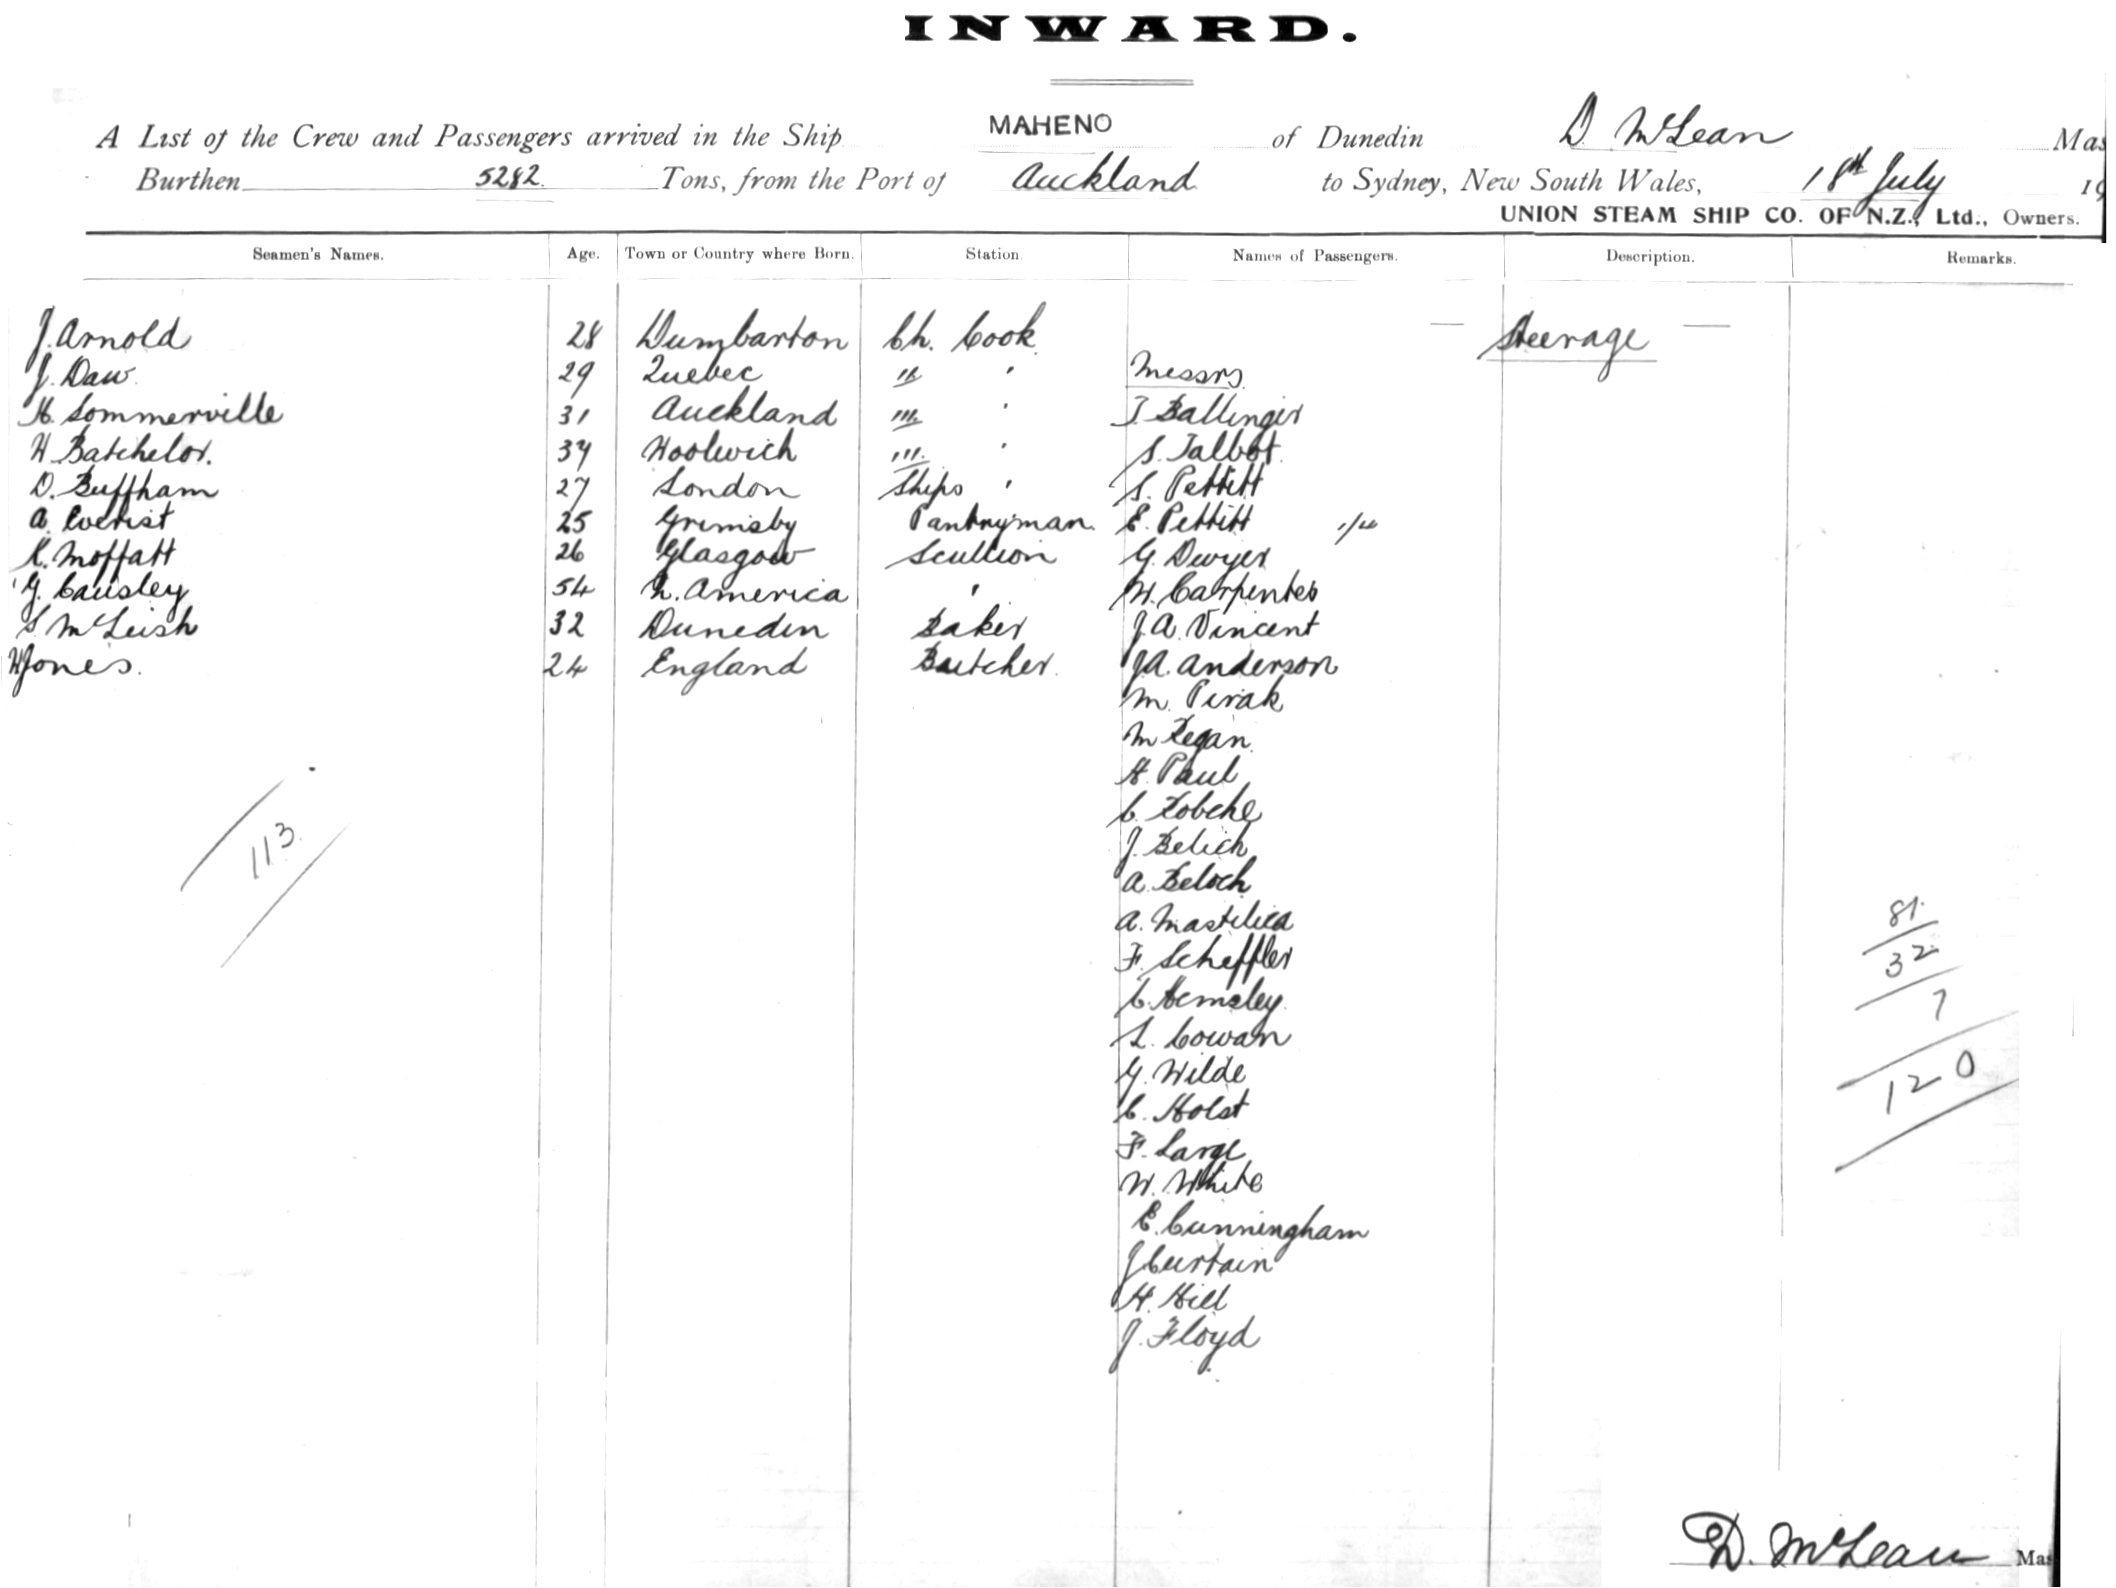 INWARD.
A List of the Crew and Passengers arrived in the Ship MAHENO of Dunedin D. McLean Mas
Burthen 5282 Tons, from the Port of Auckland to Sydney, New South Wales, 18th July 19
UNION STEAM SHIP CO. OF N.Z., Ltd., Owners.
Seamen's Names. Age. Town or Country where Born. Station Names of Passengers. Description. Remarks.
J. Arnold 28 Dumbarton Ch. Cook — Steerage —
J. Daw 29 Quebec " ' Messrs
H. Sommerville 31 Auckland ''' ' J. Ballinger
W. Batchelor. 39 Woolwich ''' ' S. Talbot
D. Buffham 27 London Ships ' S. Pettitt
A. Everist 25 Grimsby Pantryman E. Pettitt
K. Moffatt 26 Glasgow Scullion G. Dwyer
G. Causley 54 N. America ' W. Carpenter
S. McLeish 32 Dunedin Baker J.A. Vincent
W Jones. 24 England Butcher. J.A. Anderson
M. Pivak
M Regan
H. Paul
113
J. Belich
A. Beloch
A. Mastilica 81
F. Scheffler 32
C. Hemsley 7
L. Cowan
G. Wilde 120
C. Holst
F. Large
W. White
E. Cunningham
J Curtain
H. Hill
J. Floyd
D. McLean Mas